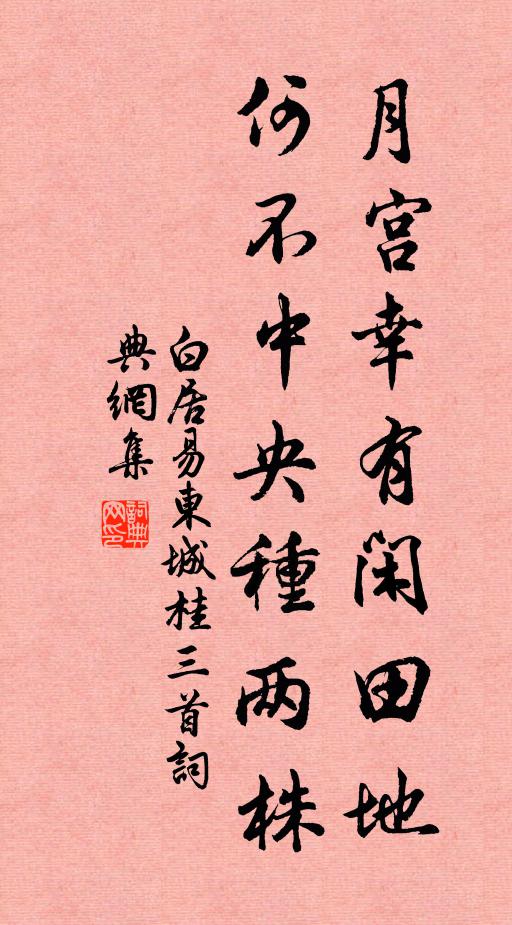 月宫幸有閑田地
何不中央種两株
白居易東城桂三首詞
典網集
詞典网印